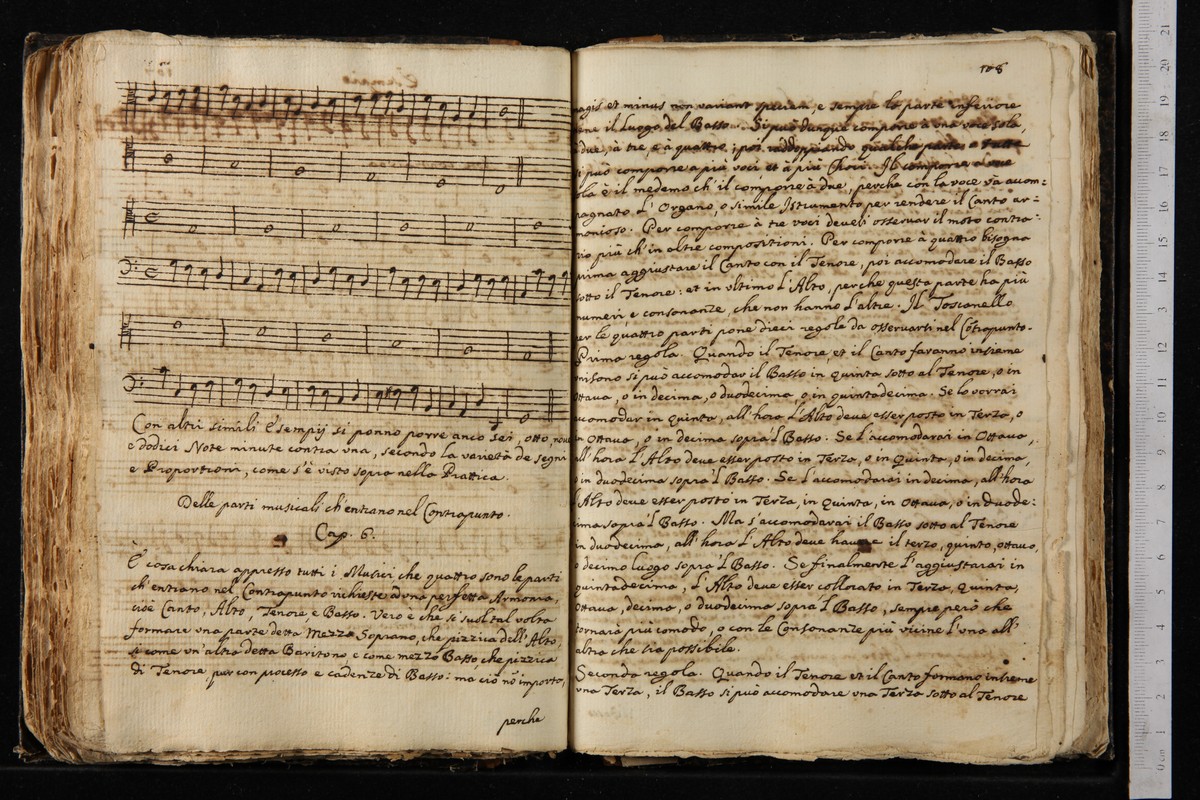 Con altri simili Essempij si ponno porre anco sei, otto, nove
e dodici Note minute contra una, secondo la varietà de segni
e Proportioni, come s'è visto sopra nella Prattica.
Delle parti musicali ch'entrano nel Contrapunto.
Cap. 6.
È cosa chiara appresso tutti i Musici che quattro sono le parti
ch'entrano nel Contrapunto richieste ad una perfetta Armonia,
cioè Canto, Alto, Tenore e Basso. Vero è che se suol tal volta
formare una parte detta Mezzo Soprano, che pizzica dell'Alto,
se come un'altra detta Baritono e come mezzo Basso, che pizzica
di Tenore, pur con processo e cadenze di Basso: ma ciò nõ importa,
perche
108
magis et minus non variant speciem, e sempre la parte inferiore
tiene il luogo del Basso. Si può dunque comporre à una voce sola,
due, à tre, e à quattro; poi raddoppiando qualche parte, a tutte
si può comporre a più voci et à più Chori. Il comporre a voce
sola è il medemo ch'il comporre à due, perche con la voce và accom=
pagnato L'Organo, o simile Istrumento per rendere il Canto ar=
monioso. Per comporre à tre voci devesi osservar il moto contra=
rio più ch'in altre compositioni. Per comporre à quattro bisogna
prima aggiustare il Canto con il Tenore, poi accomodare il Basso
sotto il Tenore: et in ultimo L'Alto, perche questa parte ha più
numeri e consonanze, che non hanno L'altre. Il Toscanello
per le quattro parti pone dieci regole da osservarsi nel Cõtrapunto.
Prima regola. Quando il Tenore, et il Canto faranno insieme
unisono si può accomodar il Basso in Quinta sotto al Tenore, o in
Ottava, o in decima, o duodecima, o in quintadecima. Se lo vorrai
accomodar in Quinta, all'hora L'Alto deve esser posto in Terza, o
in Ottava, o in decima sopra'l Basso. Se L'accomodarai in Ottava,
all'hora L'Alto deve esser posto in Terza, o in Quinta, o in decima,
o in duodecima sopra'l Basso. Se L'accomodarai in decima, all'hora
L'Alto deve esser posto in Terza, in Quinta, in Ottava, o in duode=
cima sopra'l Basso. Ma s'accomodarai il Basso sotto al Tenore
in duodecima, all'hora L'Alto deve havere il terzo, quinto, ottavo,
o decimo luogo sopra'l Basso. Se finalmente L'aggiustarai in
quintadecima, L'Alto deve esser collocato in Terza, Quinta,
Ottava, decima, o duodecima sopra'l Basso, sempre però che
tornarà più comodo, o con le Consonanze più vicine L'una all'
altra che sia possibile.
Seconda regola. Quando il Tenore et il Canto formano insieme
una Terza, il Basso si può accomodare una Terza sotto al Tenore